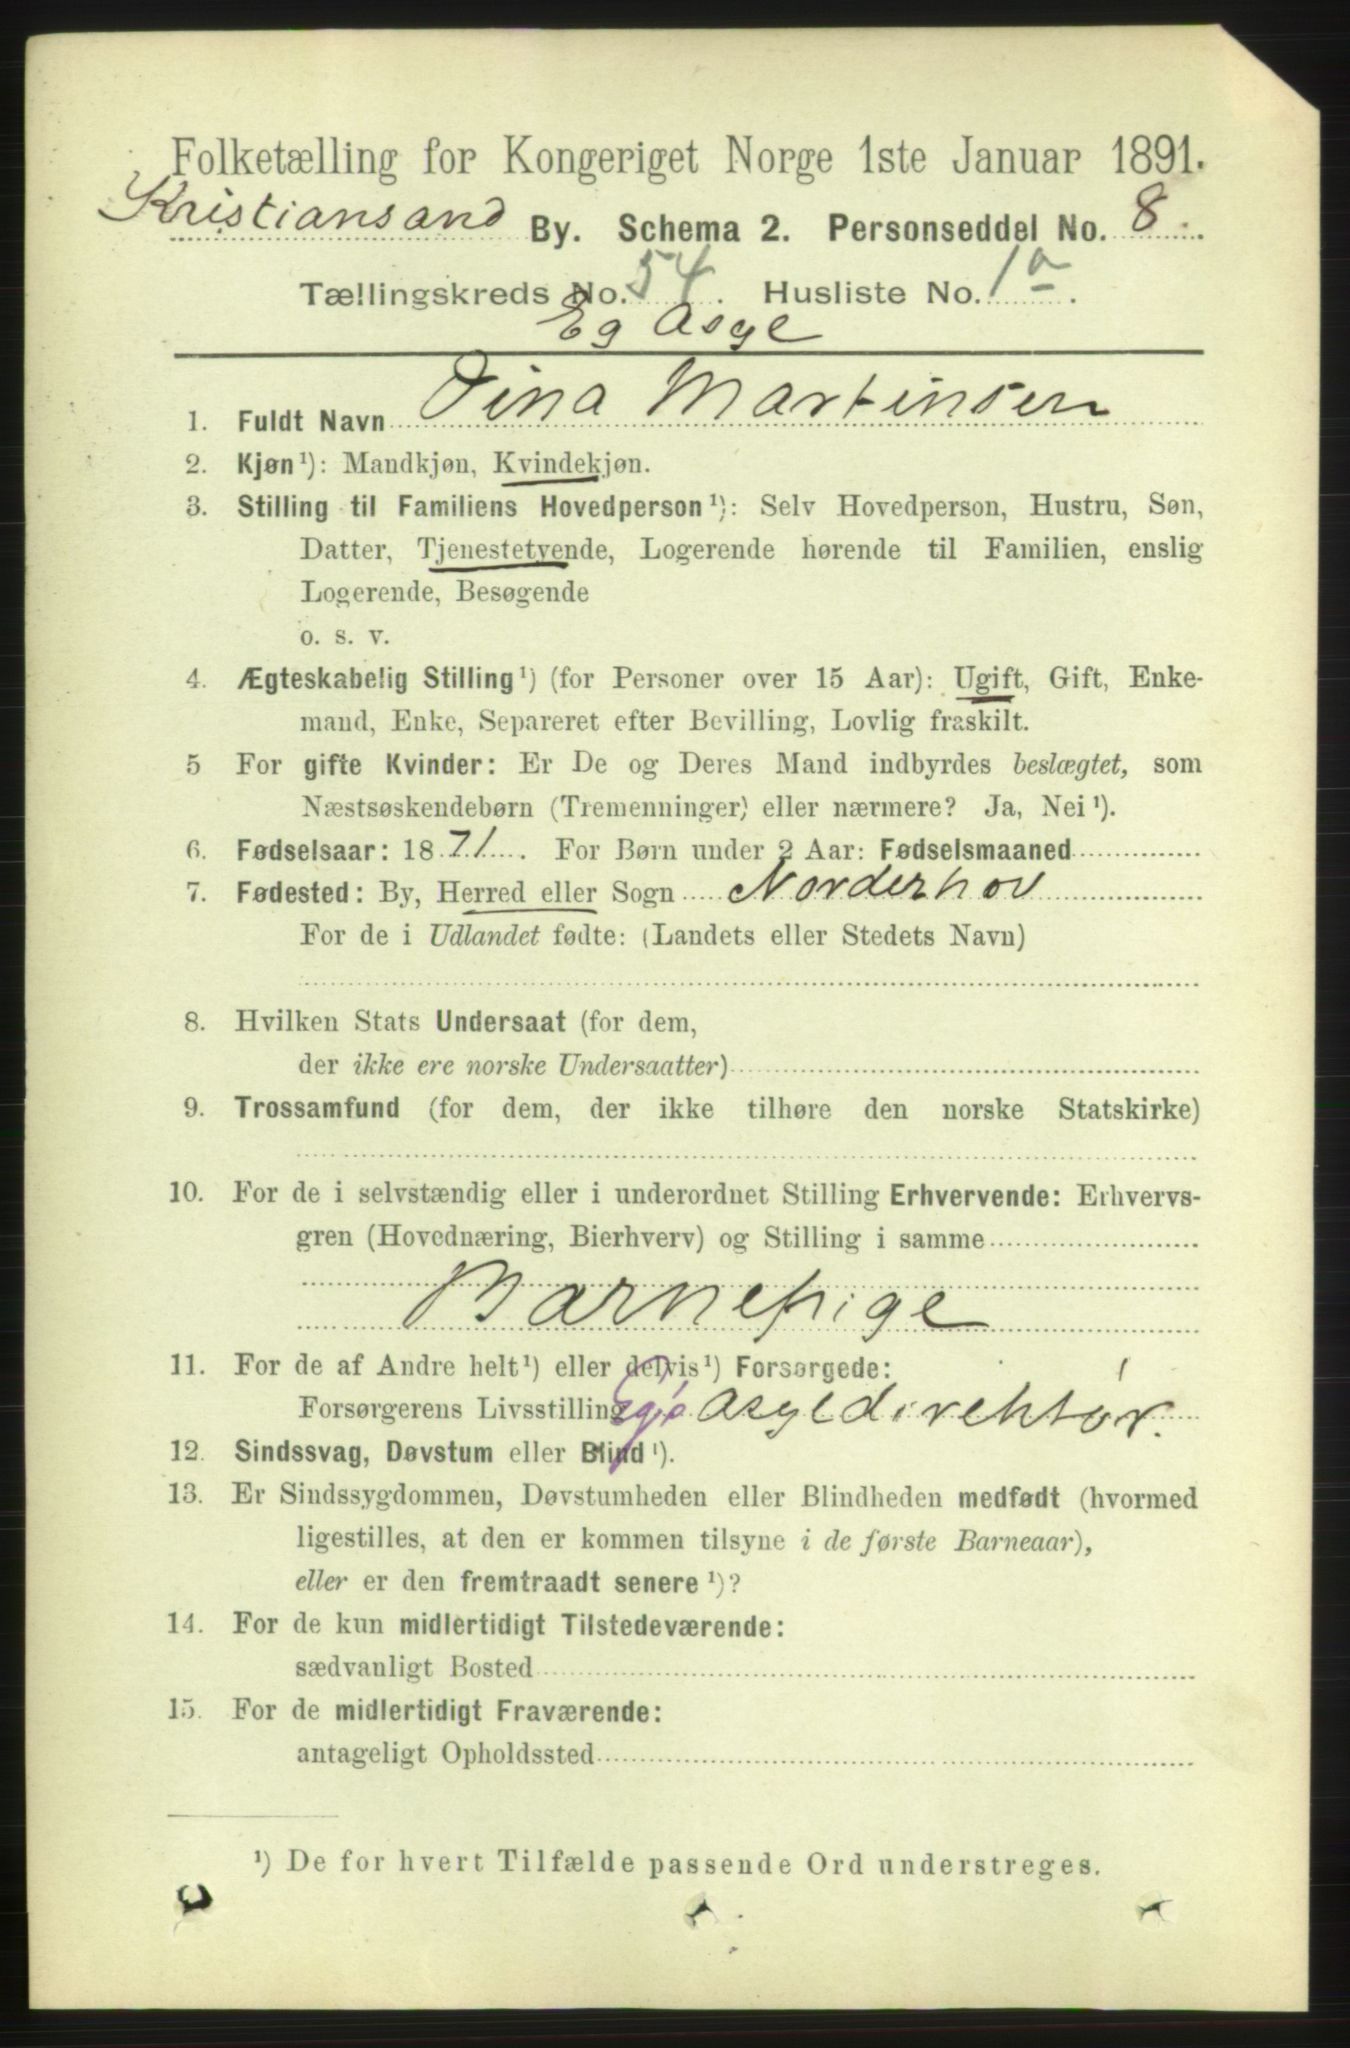 Folketælling for Kongeriget Norge 1ste Januar 1891.
Kristiansand By. Schema 2. Personseddel No. 8.
Tællingskreds No. 54. Husliste No. 1a.
Eg Asyl
1. Fuldt Navn Tina Martinsen
2. Kjøn¹): Mandkjøn, Kvindekjøn.
3. Stilling til Familiens Hovedperson¹): Selv Hovedperson, Hustru, Søn,
Datter, Tjenestetyende, Logerende hørende til Familien, enslig
Logerende, Besøgende
o. s. v.
4. Ægteskabelig Stilling¹) (for Personer over 15 Aar): Ugift, Gift, Enke-
mand, Enke, Separeret efter Bevilling, Lovlig fraskilt.
5 For gifte Kvinder: Er De og Deres Mand indbyrdes beslægtet, som
Næstsøskendebørn (Tremenninger) eller nærmere? Ja, Nei¹).
6. Fødselsaar: 1871. For Børn under 2 Aar: Fødselsmaaned
7. Fødested: By, Herred eller Sogn Norderhov
For de i Udlandet fødte: (Landets eller Stedets Navn)
8. Hvilken Stats Undersaat (for dem,
der ikke ere norske Undersaatter)
9. Trossamfund (for dem, der ikke tilhøre den norske Statskirke)
10. For de i selvstændig eller i underordnet Stilling Erhvervende: Erhvervs-
gren (Hovednæring, Bierhverv) og Stilling i samme
Barnepige
11. For de af Andre helt¹) eller delvis¹) Forsørgede:
Forsørgerens Livsstilling Asyldirektør.
12. Sindssvag, Døvstum eller Blind¹).
13. Er Sindssygdommen, Døvstumheden eller Blindheden medfødt (hvormed
ligestilles, at den er kommen tilsyne i de første Barneaar),
eller er den fremtraadt senere¹)?
14. For de kun midlertidigt Tilstedeværende:
sædvanligt Bosted
15. For de midlertidigt Fraværende:
antageligt Opholdssted
¹) De for hvert Tilfælde passende Ord understreges.